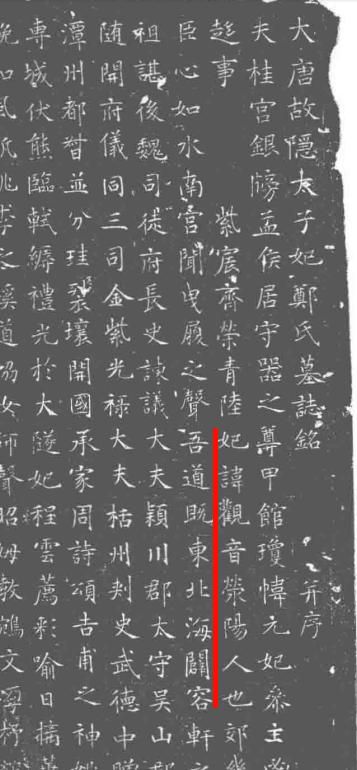 大唐故隱太子妃鄭氏墓誌銘 并序
夫桂宮銀牓孟侯居守器之尊甲館瓊幃元妃叅主
趍事 紫宸齊榮青陸妃諱觀音滎陽人也郊
臣心如水南宮聞曳履之聲吾道既東北海闢容軒
祖諶後魏司徒府長史諫議大夫潁川郡太守吳山郡
随開府儀同三司金紫光祿大夫栝州刾史武德中贈
潭州都督並分珪裂壤開國承家周詩頌吉甫之神
專城伏熊臨軾縟禮光於大隧妃程雲薦彩喻日摛